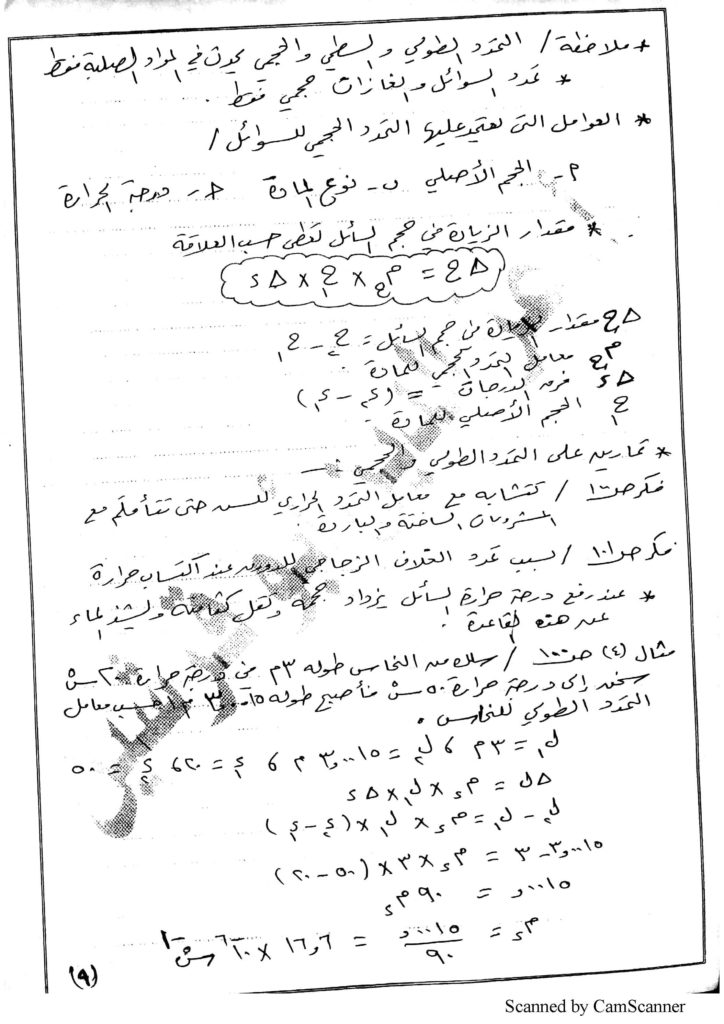 * ملاحظة / التمدد الطولي والسطحي والحجمي يحدث في المواد الصلبة فقط
* تمدد السوائل والغازات حجمي فقط .
* العوامل التي يعتمد عليها التمدد الحجمي للسوائل /
م - الحجم الأصلي ب - نوع المادة حـ - درجة الحرارة
* مقدار الزيادة في حجم السائل تعطى حسب العلاقة
Δح = مح × ح١ × Δد
Δح مقدار الزيادة في حجم السائل = ح٢ - ح١
مح معامل التمدد الحجمي للمادة .
Δد فرق الدرجات = (د٢ - د١)
ح١ الحجم الأصلي للمادة .
* تمارين على التمدد الطولي والحجمي :-
فكر ص١٠٠ / لتتشابه مع معامل التمدد الحراري للسن حتى تتأقلم مع
المشروبات الساخنة والباردة .
فكر ص١٠١ / بسبب تمدد الغلاف الزجاجي للدورق عند اكتساب حرارة
* عند رفع درجة حرارة السائل يزداد حجمه وتقل كثافته ويشذ الماء
عن هذه القاعدة .
مثال (٤) ص١٠٠ / سلك من النحاس طوله ٣م في درجة حرارة ٢٠ سْ
سخن إلى درجة حرارة ٥٠ سْ فأصبح طوله ٣٫٠٠٠١٥ م احسب معامل
التمدد الطولي للنحاس .
ل١ = ٣م ، ل٢ = ٣٫٠٠٠١٥ م ، د١ = ٢٠ ، د٢ = ٥٠
Δل = مد × ل١ × Δد
ل٢ - ل١ = مد × ل١ × (د٢ - د١)
٣٫٠٠٠١٥ - ٣ = مد × ٣ × (٥٠ - ٢٠)
٫٠٠٠١٥ = ٩٠ مد
مد = ٫٠٠٠١٥ / ٩٠ = ١٫٦٦ × ١٠-٦ سْ-١
(٩)
Scanned by CamScanner